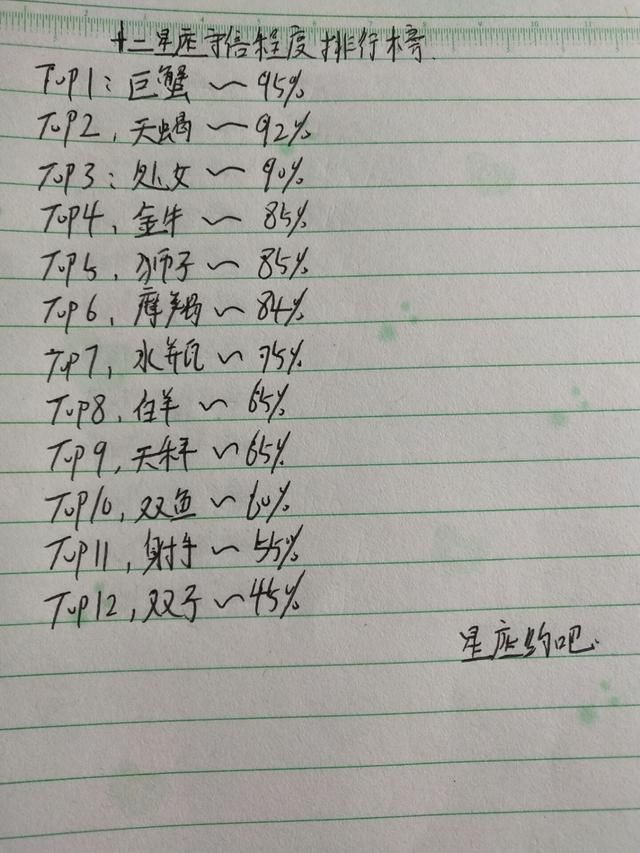 十二星座守信程度排行榜.
Top1：巨蟹～95%
Top2，天蝎～92%
Top3：处女～90%
Top4，金牛～85%
Top5，狮子～85%
Top6，摩羯～84%
Top7，水井瓦～75%
Top8，白羊～65%
Top9，天秤～65%
Top10，双鱼～60%
Top11，射手～55%
Top12，双子～45%
星座约吧.